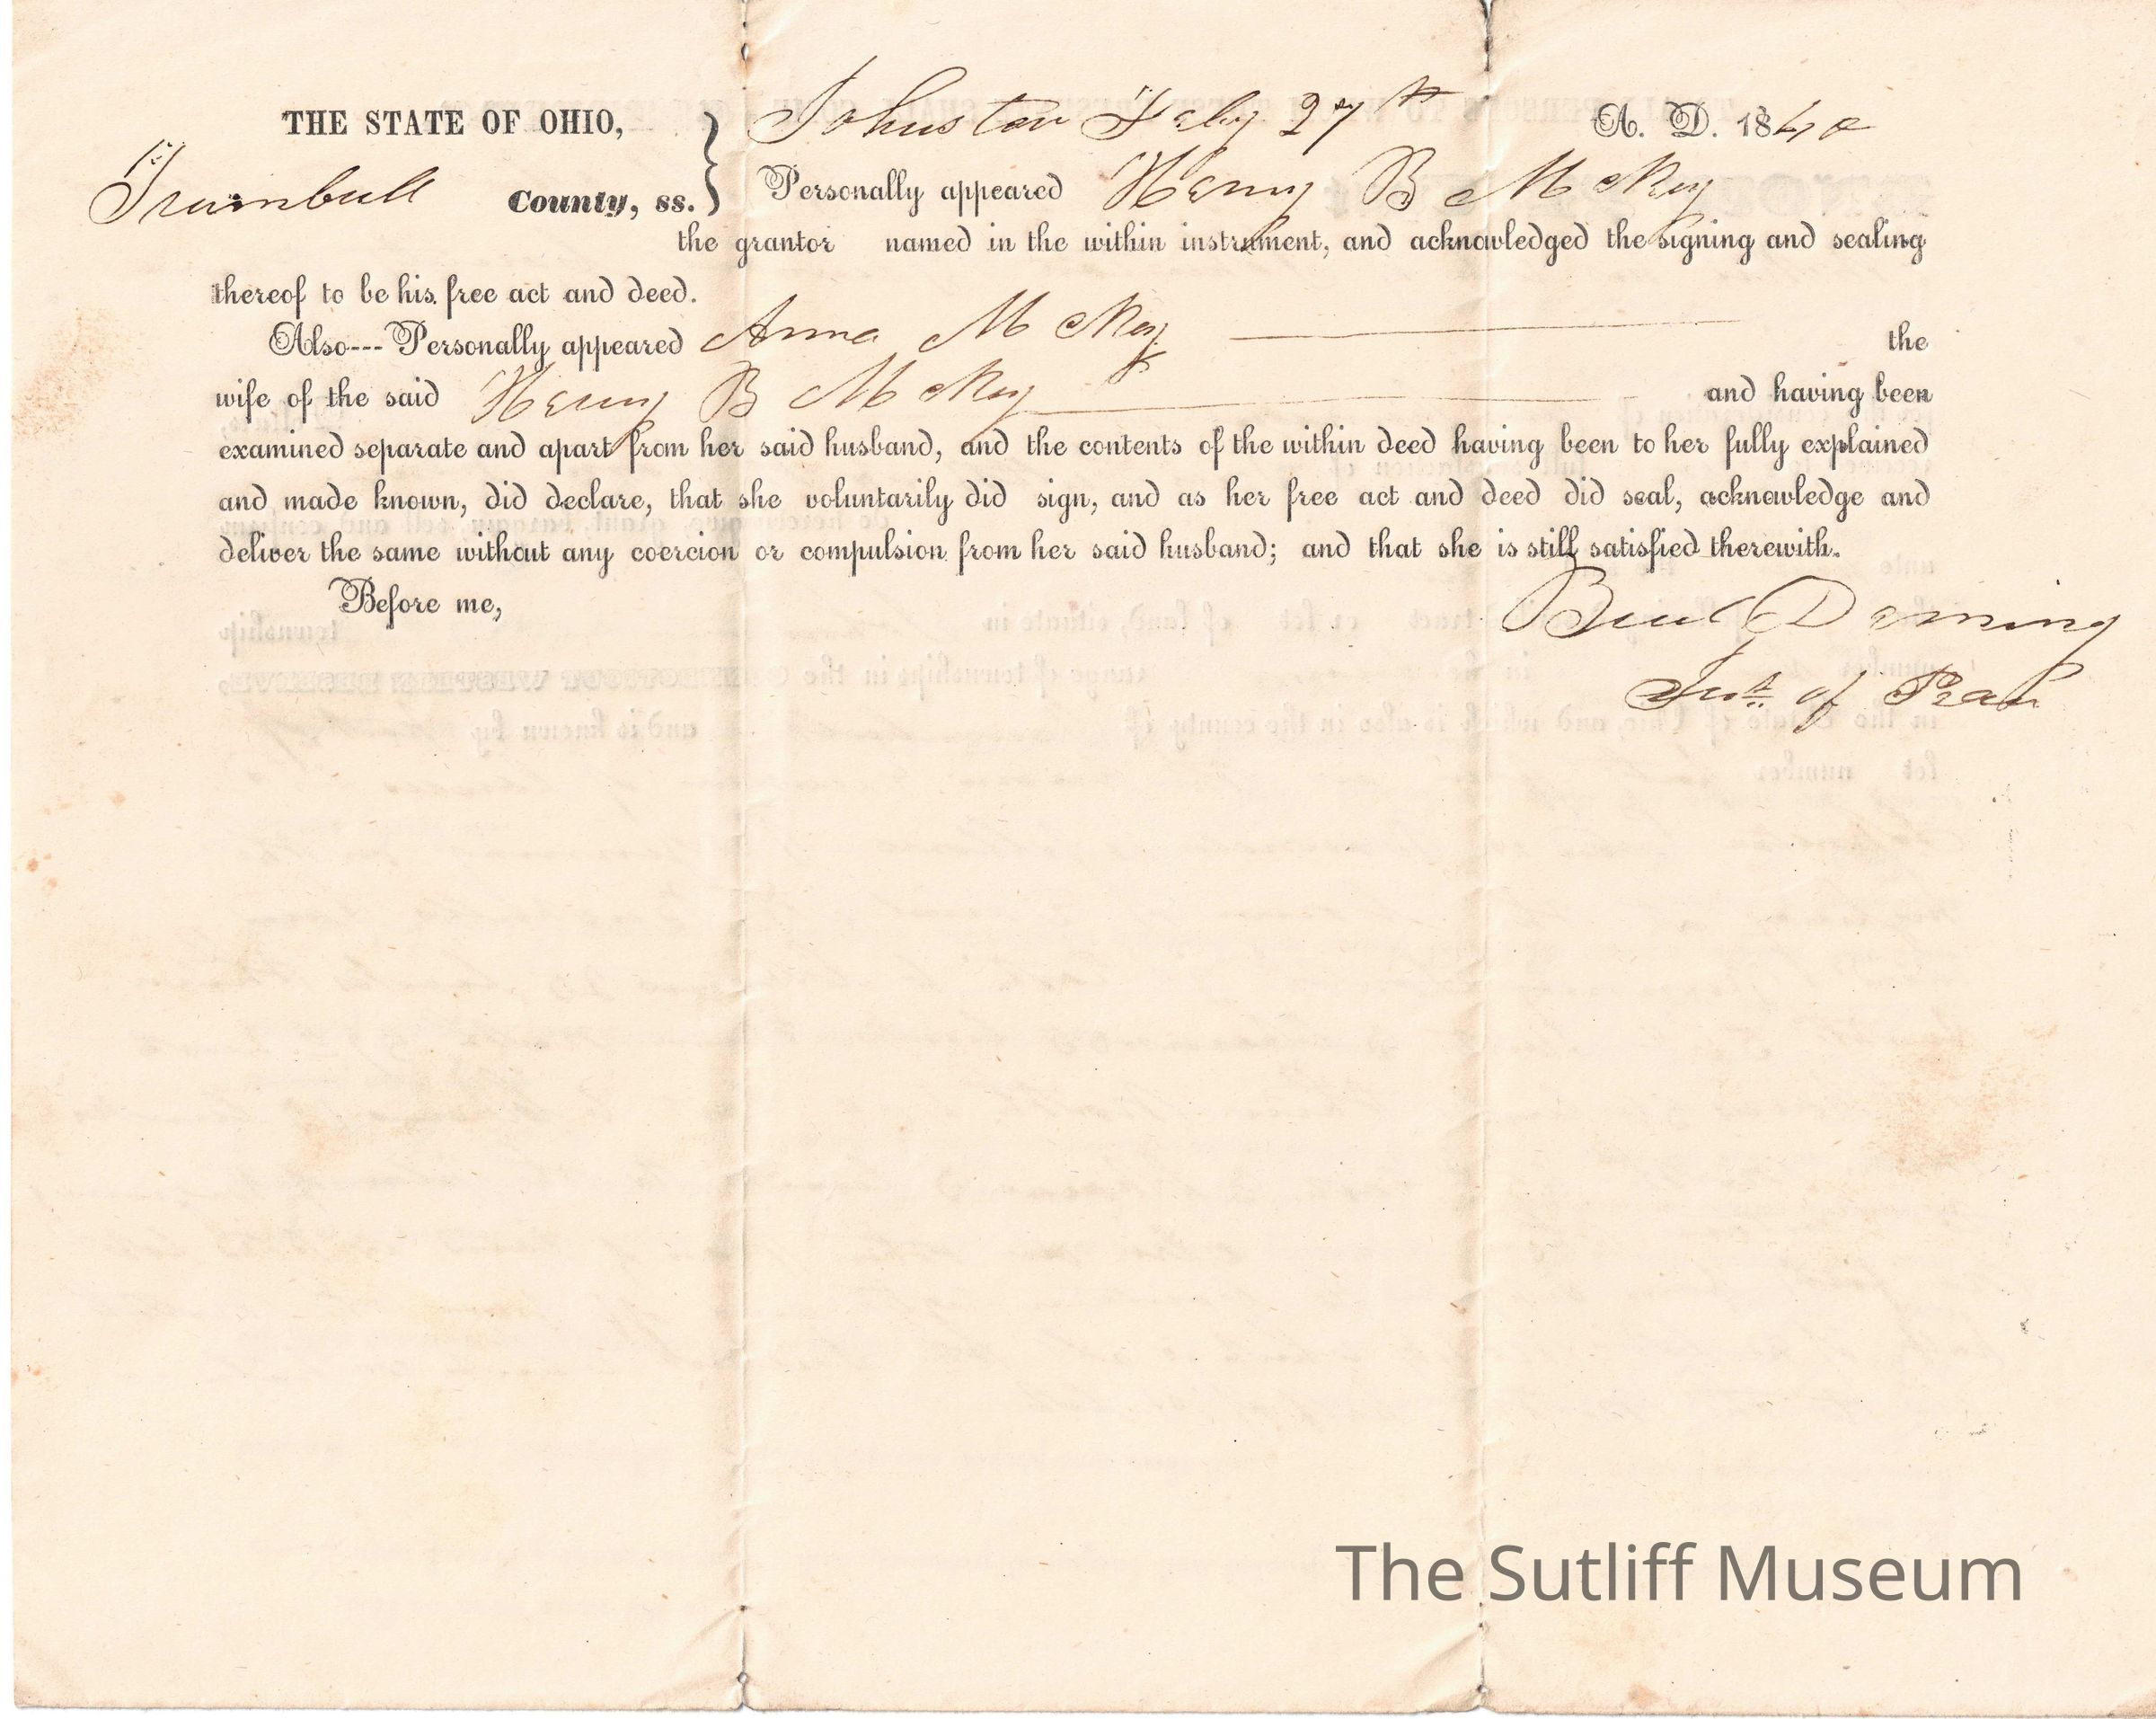 THE STATE OF OHIO, } Johnston Feby 27th A. D. 1840
Trumbull County, ss. } Personally appeared Henry B McKey
the grantor named in the within instrument, and acknowledged the signing and sealing
thereof to be his free act and deed.
Also---Personally appeared Anna McKey the
wife of the said Henry B McKey and having been
examined separate and apart from her said husband, and the contents of the within deed having been to her fully explained
and made known, did declare, that she voluntarily did sign, and as her free act and deed did seal, acknowledge and
deliver the same without any coercion or compulsion from her said husband; and that she is still satisfied therewith.
Before me,
Deming
Just. of Peace
The Sutliff Museum